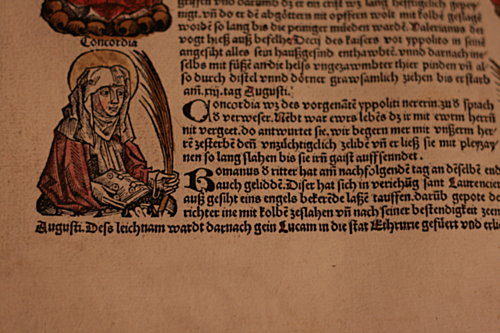 griffen vnd darumb dz er ein crist wz lang hefftigclich gepey
nigt. vñ do er dē abgöttern nit opffern wolt mit kolbē geslagē
wordē so lang bis die peiniger müeden wardē. Valerianus der
vogt hieß auß befelhe Decij des kaisers vor yppolito in seinē
Concordia
angesiht alles sein haußgesind enthawbtē. vnnd darnach ine
selbs mit füßē an die helß vngezawmbter thier pinden vñ al
so durch distel vnnd dörner grawsamlich zihen bis er starb
am .xiij. tag Augusti.
Concordia wz des vorgenātē yppoliti nererin. zu d sprach
d verweser. Nebt war ewrs lebēs dz ir mit ewrm herrn
nit vergeet. do antwurtet sie. wir begern mer mit vnßerm her
rē zesterbē deñ vnzüchtigclich zelibē vñ er ließ sie mit pleyey
nen so lang slahen bis sie irñ gaist auffsenndet.
Romanus d ritter hat am nachfolgendē tag an dēselbē end
auch geliddē. Diser hat sich in verieihūg sant Laurencien
auß gesiht eins engels bekerēde laßē tauffen. darūb gepote der
richter ine mit kolbē zeslahen vñ nach seiner bestendigkeit zem
Augusti. Dess leichnam wardt darnach gein Lucam in die stat Ethrurie gefüert vnd